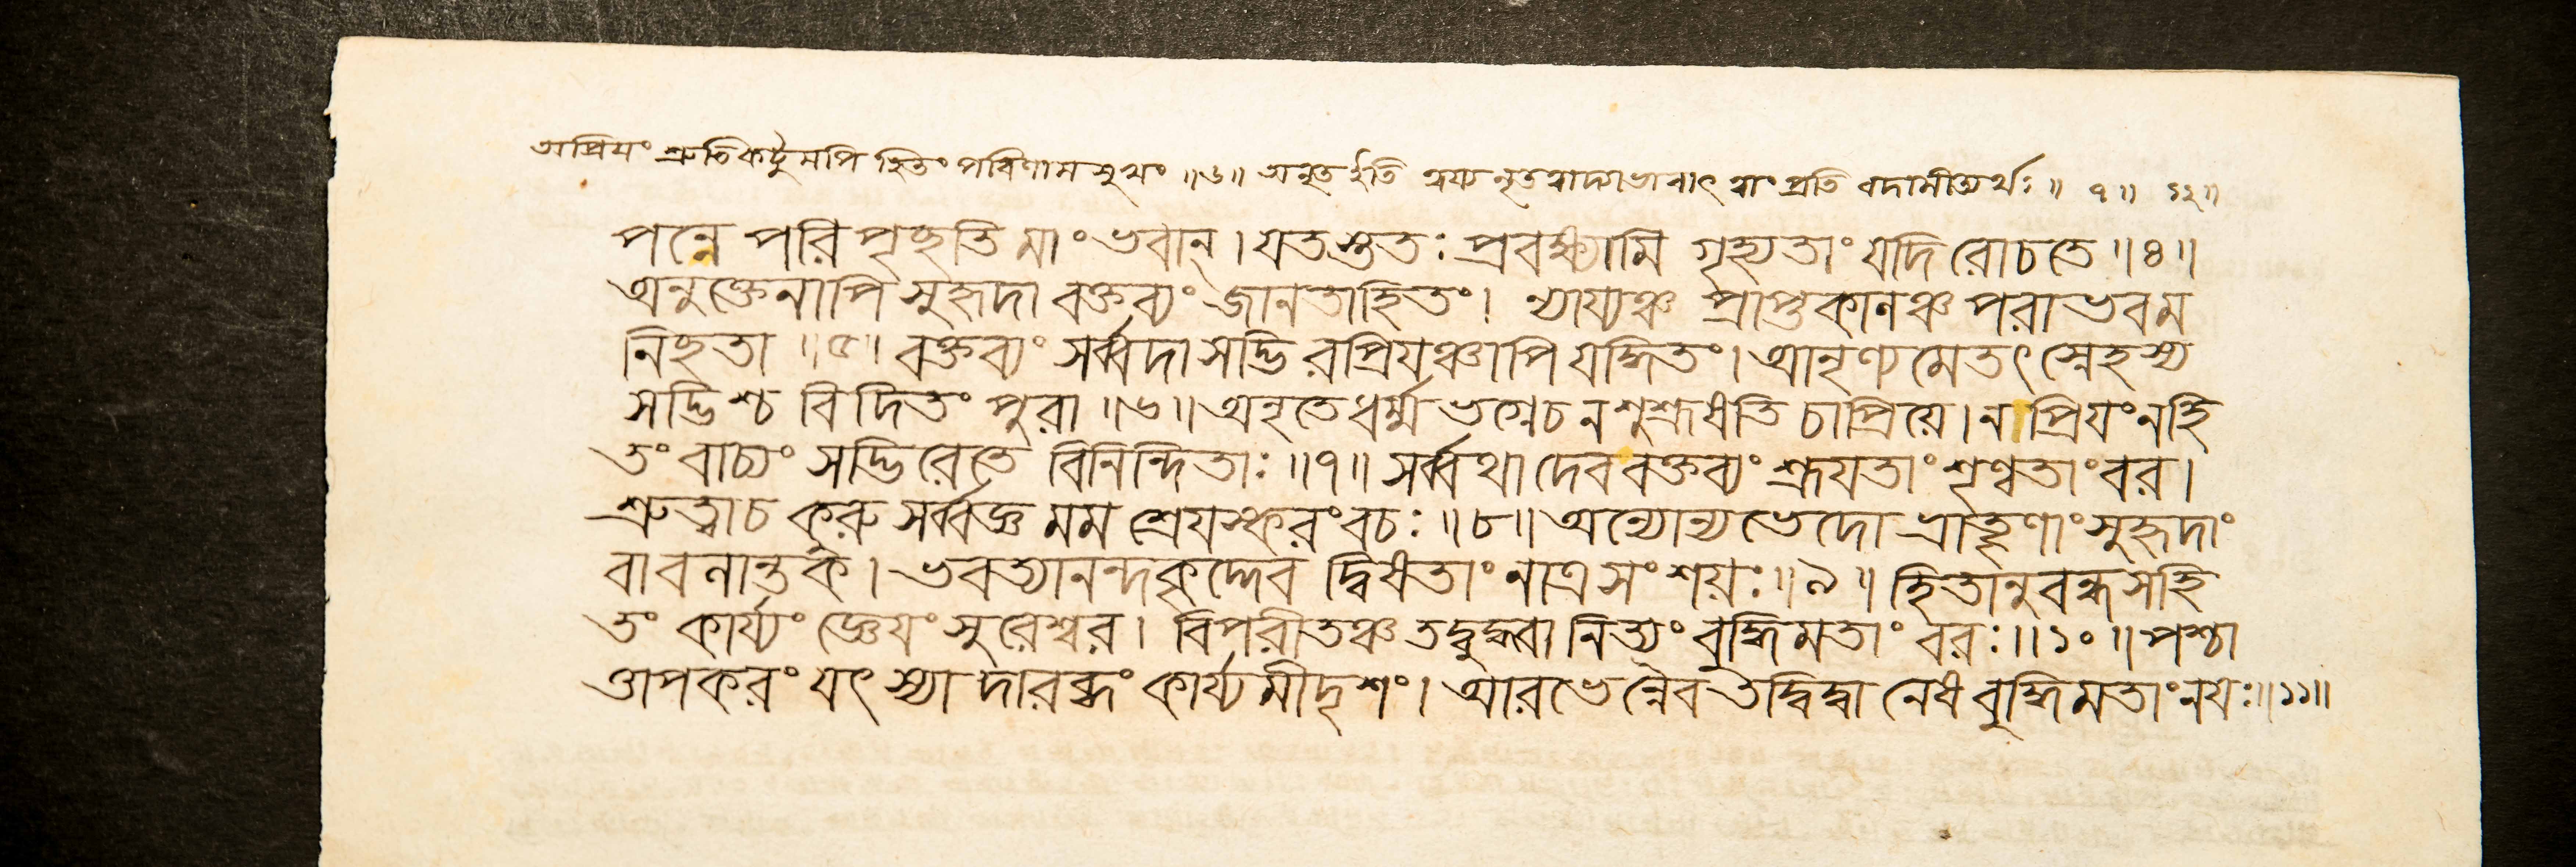 অপ্রিয়ং শ্রুতিকটুমপি হিতং পরিণামসুখং ॥৬॥ অনৃত ইতি প্রতি বদামীত্যর্থঃ ॥ ৭॥ ১২॥
পন্নে পরিপৃচ্ছতি মাং ভবান্ । যতস্ততঃ প্রবক্ষ্যামি গৃহ্যতাং যদি রোচতে ॥৪॥
অনুক্তেনাপি সুহৃদা বক্তব্যং জানতাহিতং । ন্যায্যঞ্চ প্রাপ্তকালঞ্চ পরাভবম
নিচ্ছতা ॥৫॥ বক্তব্যং সর্ব্বদা সদ্ভিরপ্রিযঞ্চাপি যদ্ধিতং । আনৃণ্যমেতৎ স্নেহস্য
সদ্ভিশ্চ বিদিতং পুরা ॥৬॥ অনৃতে ধর্ম্মভগ্নেচ নশুশ্রূষতি চাপ্রিয়ে । ন প্রিযং নহি
তং বাচ্যং সদ্ভিরেতে বিনিন্দিতাঃ ॥৭॥ সর্ব্বথা দেব বক্তব্যং শ্রূযতাং শৃণ্বতাং বর ।
শ্রুত্বাচ কুরু সর্ব্বজ্ঞ মম শ্রেযস্করং বচঃ ॥৮॥ অন্যোন্যভেদো ভ্রাতৄণাং সুহৃদাং
বাবলান্তক । ভবত্যানন্দকৃদ্দেব দ্বিষতাং নাত্র সংশয়ঃ ॥৯॥ হিতানুবন্ধসহি
তং কার্য্যং জ্ঞেযং সুরেশ্বর । বিপরীতঞ্চ তদ্বুদ্ধ্বা নিত্যং বুদ্ধিমতাং বরঃ ॥১০॥ পশ্চা
ত্তাপকরং যৎ স্যাদারব্ধং কার্য্যমীদৃশং । আরভেন্নৈব তদ্বিদ্বানেষ বুদ্ধিমতাং নযঃ ॥১১॥